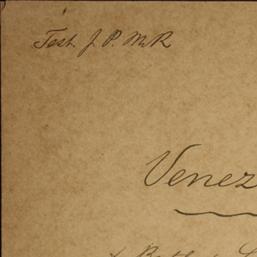 Test. J. P. McR
Venez